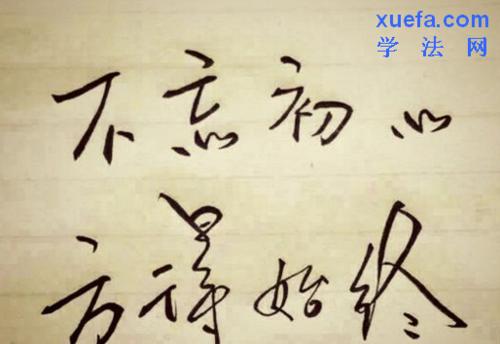 xuefa.com
学法网
不忘初心
方得始终